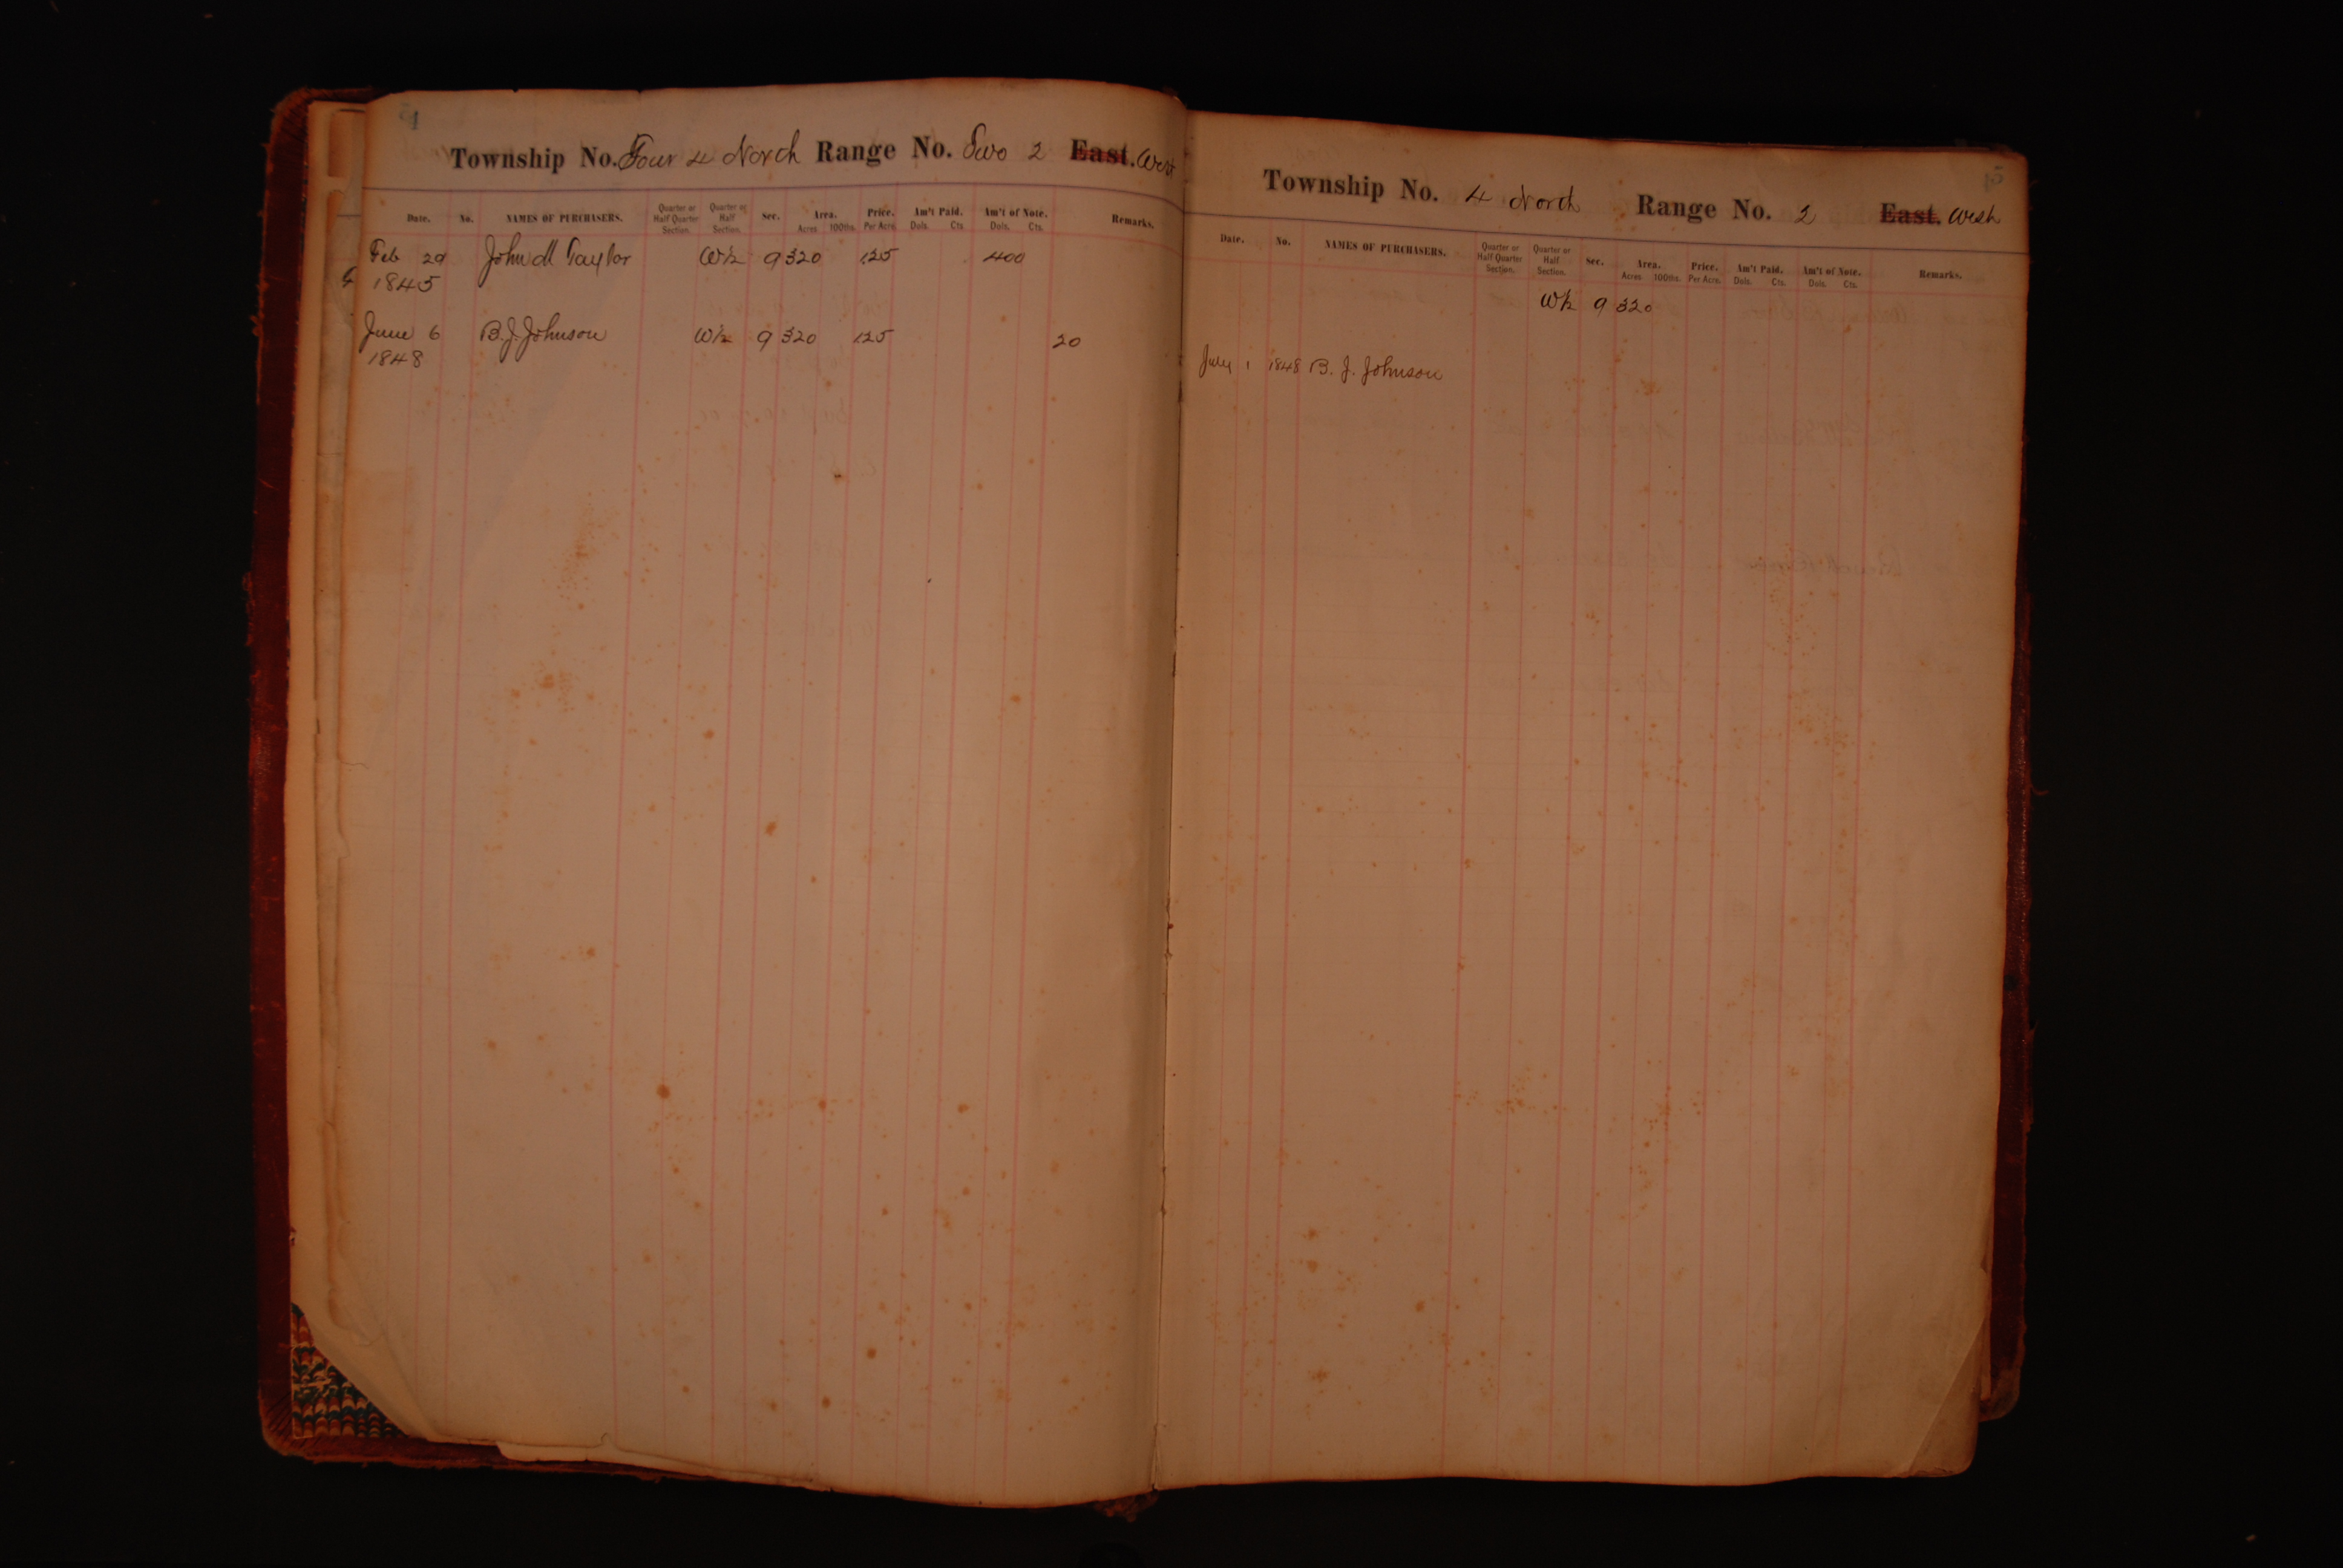 Township No. Four 4 North Range No. Two 2 East. West
Date. No. NAMES OF PURCHASERS. Quarter or Half Quarter Section. Quarter or Half Section. Sec. Area. Acres 100ths. Price. Per Acre. Am't Paid. Dols. Cts. Am't of Note. Dols. Cts. Remarks.
Feb 29 John M Taylor W½ 9 320 125 400
1845
June 6 B. J. Johnson W½ 9 320 125 20
1848
Township No. 4 North Range No. 2 East. West
Date. No. NAMES OF PURCHASERS. Quarter or Half Quarter Section. Quarter or Half Section. Sec. Area. Acres 100ths. Price. Per Acre. Am't Paid. Dols. Cts. Am't of Note. Dols. Cts. Remarks.
W½ 9 320
July 1 1848 B. J. Johnson